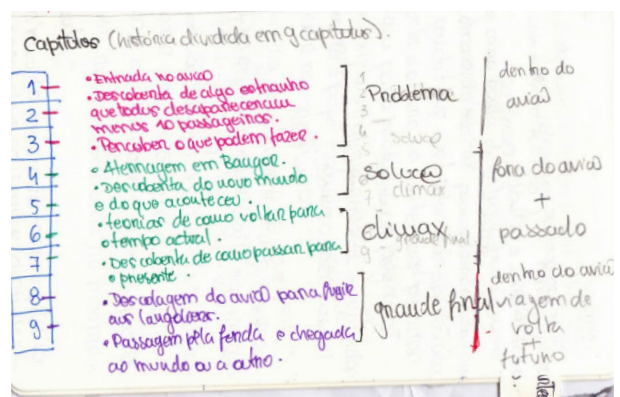 Capítulos (história dividida em 9 capítulos).
1
2
3
4
5
6
7
8
9
• Entrada no avião
• Descoberta de algo estranho
que todos desapareceram
menos 10 passageiros.
• Perceber o que podem fazer.
• Aterragem em Bangor.
• Descoberta do novo mundo
e do que aconteceu.
• teorias de como voltar para
o tempo actual.
• Descoberta de como passar para
o presente.
• Descolagem do avião para fugir
aos langoliers.
• Passagem pela fenda e chegada
ao mundo ou a outro.
Problema
solução
climax
grande final
dentro do
avião
fora do avião
+
passado
dentro do avião
viagem de
volta
+
futuro